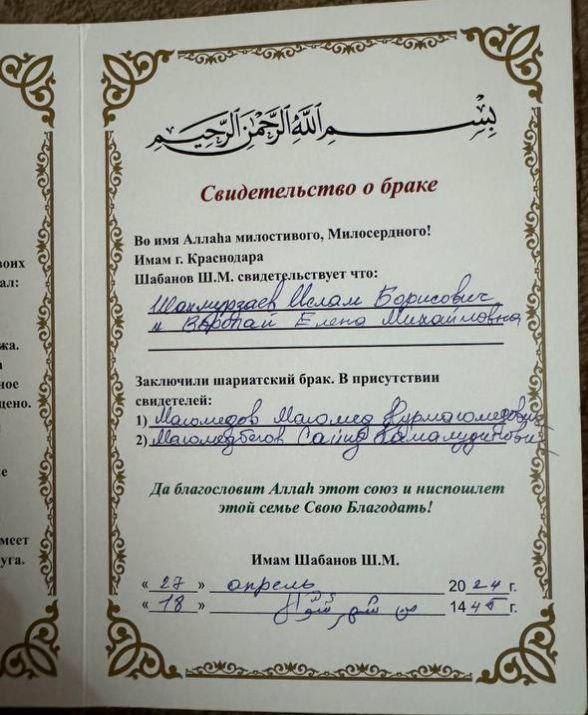 بِسْمِ اللَّهِ الرَّحْمَنِ الرَّحِيمِ
Свидетельство о браке
Во имя Аллаһа милостивого, Милосердного!
Имам г. Краснодара
Шабанов Ш.М. свидетельствует что:
Шахмурзаев Ислам Борисович
и Варопай Елена Михайловна
Заключили шариатский брак. В присутствии
свидетелей:
1) Магомедов Магомед Нурмагомедович
2) Магомедбегов Сайид Камалудинович
Да благословит Аллаһ этот союз и ниспошлет
этой семье Свою Благодать!
Имам Шабанов Ш.М.
« 27 » апрель 2024 г.
« 18 » من شهر شوال 1445 г.
воих
ал:
жа.
ное
цено.
е
меет
уга.